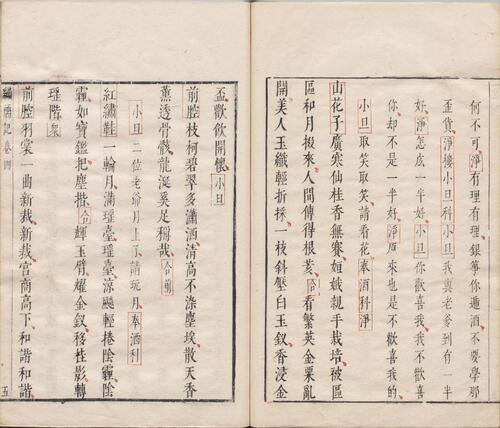 何可淨有理有理何銀你遁酒不要學那
歪貨淨摟小旦科小旦我喪老爹到有一半
好淨怎麽一半好小旦你歡喜我我不歡喜
你却不是一半好淨原來也是不歡喜我的
小旦取笑取笑請看花奉酒科淨
山花子廣寒仙桂香無賽姮娥親手栽培被區
區和月掇來人間傳得根荄合看繁英金粟亂
開美人玉纖輕折採一枝斜壓白玉釵香浸金
盃歡飲開懷小旦
前腔枝柯碧翠多瀟洒清高不染塵埃散天香
薰透骨骸龍涎奚足稱哉合前
小旦二位老爺月上了請玩月奉酒科
紅繡鞋一輪月滿瑤臺瑤臺涼飈輕捲陰霾陰
霾如寶鑑把塵揩合輝玉臂耀金釵移桂影轉
瑤階衆
前腔羽裳一曲新裁新裁宮商高下和諧和諧
繡襦記卷四
五